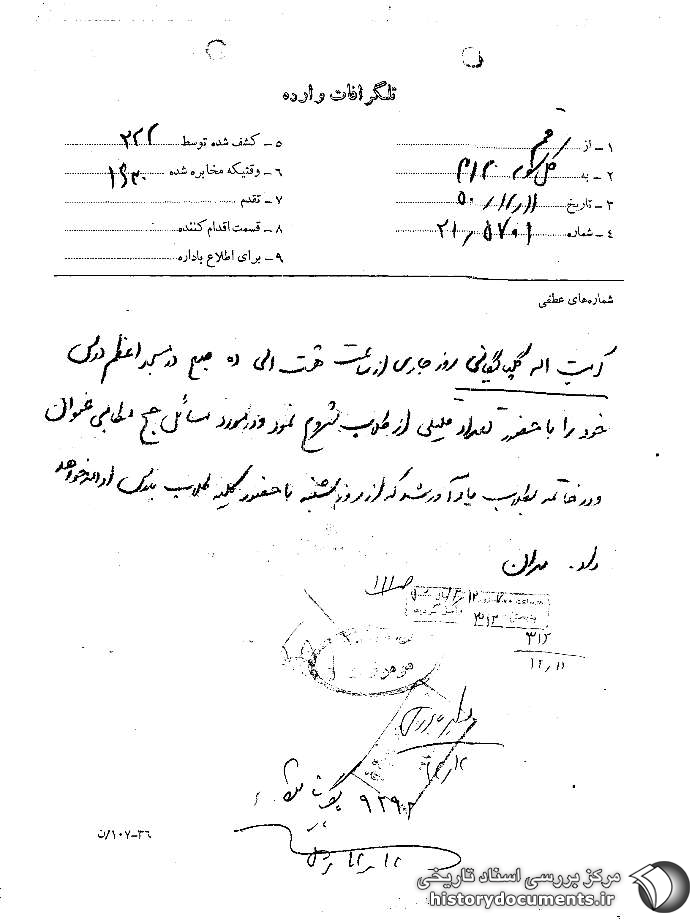 تلگرافات وارده
۱ـ از قم
۲ـ به کل سوم ۳۱۲
۳ـ تاریخ ۵۰/۱۲/۱۱
۴ـ شماره ۲۱/۵۷۰۱
۵ـ کشف شده توسط ۲۲۲
۶ـ وقتیکه مخابره شده ۱۶۳۰
۷ـ تقدم
۸ـ قسمت اقدام کننده
۹ـ برای اطلاع باداره
شماره‌های عطفی
آیت اله گلپایگانی روز جاری از ساعت هشت الی ده صبح در مسجد اعظم درس
خود را با حضور تعداد قلیلی از طلاب شروع نمود و در مورد مسائل حج مطالبی عنوان
و در خاتمه بطلاب یادآور شد که از روز شنبه با حضور کلیه طلاب بدرس ادامه خواهد
داد. مهران
۳۱۲
۳۱۲
۱۲/۱۱
۹۲۹۰۲
۱۲/۱۲
۳۶-۱۰۷/ن
مرکز بررسی اسناد تاریخی
historydocuments.ir